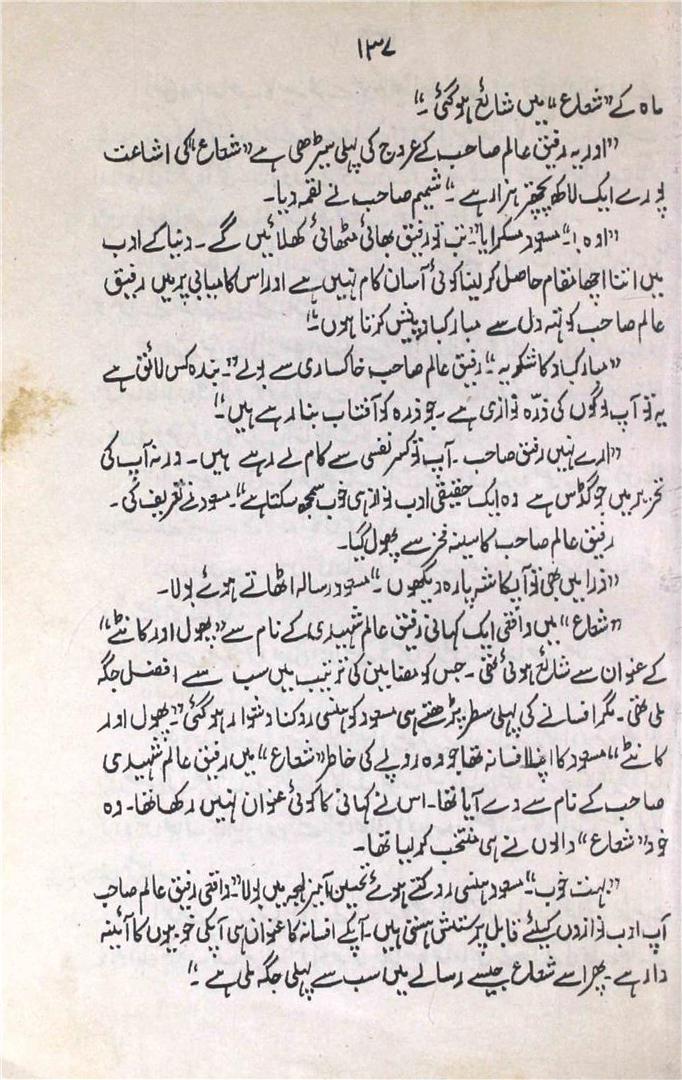 ۱۳۷
ماہ کے "شعاع" میں شائع ہوگئی ۔"
"اور یہ رفیق عالم صاحب کے عروج کی پہلی سیڑھی ہے "شعاع" کی اشاعت
پورے ایک لاکھ پچھتر ہزار ہے ۔" شمیم صاحب نے لقمہ دیا۔
"اوہ!۔" مسعود مسکرایا "۔ تب تو رفیق بھائی مٹھائی کھلائیں گے ۔ دنیائے ادب
میں اتنا اچھا مقام حاصل کر لینا کوئی آسان کام نہیں ہے اور اس کامیابی پر میں رفیق
عالم صاحب کو تہہ دل سے مبارکباد پیش کرتا ہوں ۔"
"مبارکباد کا شکریہ ۔" رفیق عالم صاحب خاکساری سے بولے "۔ بندہ کس لائق ہے
یہ تو آپ لوگوں کی ذرّہ نوازی ہے ۔ جو ذرہ کو آفتاب بنا رہے ہیں ۔"
"ارے نہیں رفیق صاحب ۔ آپ تو کسر نفسی سے کام لے رہے ہیں ۔ ورنہ آپ کی
تحریر میں جو گڈس ہے وہ ایک حقیقی ادب نواز ہی خوب سمجھ سکتا ہے "۔ مسعود نے تعریف کی ۔
رفیق عالم صاحب کا سینہ فخر سے پھول گیا۔
"ذرا میں بھی تو آپ کا شہ پارہ دیکھوں ۔" مسعود رسالہ اٹھاتے ہوئے بولا۔
"شعاع" میں واقعی ایک کہانی رفیق عالم شہیدی کے نام سے "پھول اور کانٹے"
کے عنوان سے شائع ہوئی تھی ۔ جس کو مضامین کی ترتیب میں سب سے افضل جگہ
ملی تھی ۔ مگر افسانے کی پہلی سطر پڑھتے ہی مسعود کو ہنسی روکنا دشوار ہو گئی "۔ پھول اور
کانٹے" مسعود کا اپنا افسانہ تھا جو وہ روپے کی خاطر "شعاع" میں رفیق عالم شہیدی
صاحب کے نام سے دے آیا تھا۔ اس نے کہانی کا کوئی عنوان نہیں رکھا تھا۔ وہ
خود "شعاع" والوں نے ہی منتخب کر لیا تھا۔
"بہت خوب ۔" مسعود ہنسی روکتے ہوئے تحسین آمیز لہجہ میں بولا "۔ واقعی رفیق عالم صاحب
آپ ادب نوازوں کیلئے قابل پرستش ہستی ہیں ۔ آپکے افسانہ کا عنوان ہی آپکی خوبیوں کا آئینہ
دار ہے ۔ پھر اسے شعاع جیسے رسالے میں سب سے پہلی جگہ ملی ہے ۔"